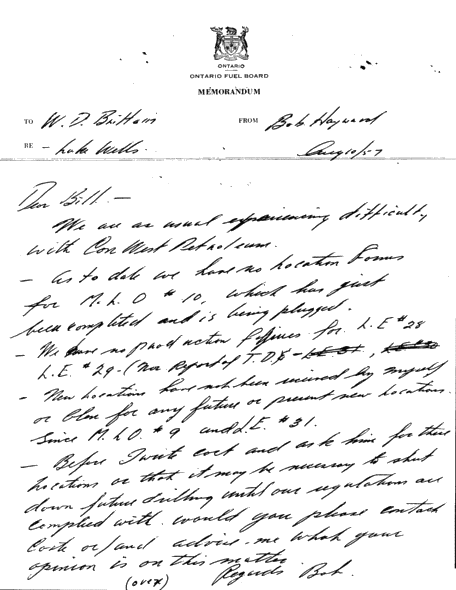 ONTARIO
ONTARIO FUEL BOARD
MEMORANDUM
TO W. D. Brittain FROM Bob Hayward
RE - Lake Wells. Aug 10/57
Dear Bill. -
We are as usual experiencing difficulty
with Con West Petroleum.
- As to date we have no Location Forms
for M.L.O # 10, which has just
been completed and is being plugged.
- We have no production figures for L.E # 28
L.E. # 29 - (Nor Reported T.D.)
- New Locations have not been received by myself
or Glen for any future or present new locations.
Since M.L.O. # 9 and L.E. # 31.
- Before I write cork and ask him for these
locations or that it may be necessary to shut
down future drilling until our regulations are
complied with. would you please contact
Cork or/and advise me what your
opinion is on this matter
(over) Regards Bob.